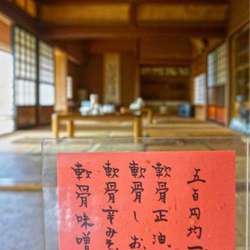 五百円均一
軟骨正油
軟骨しお
軟骨辛みそ
軟骨味噌